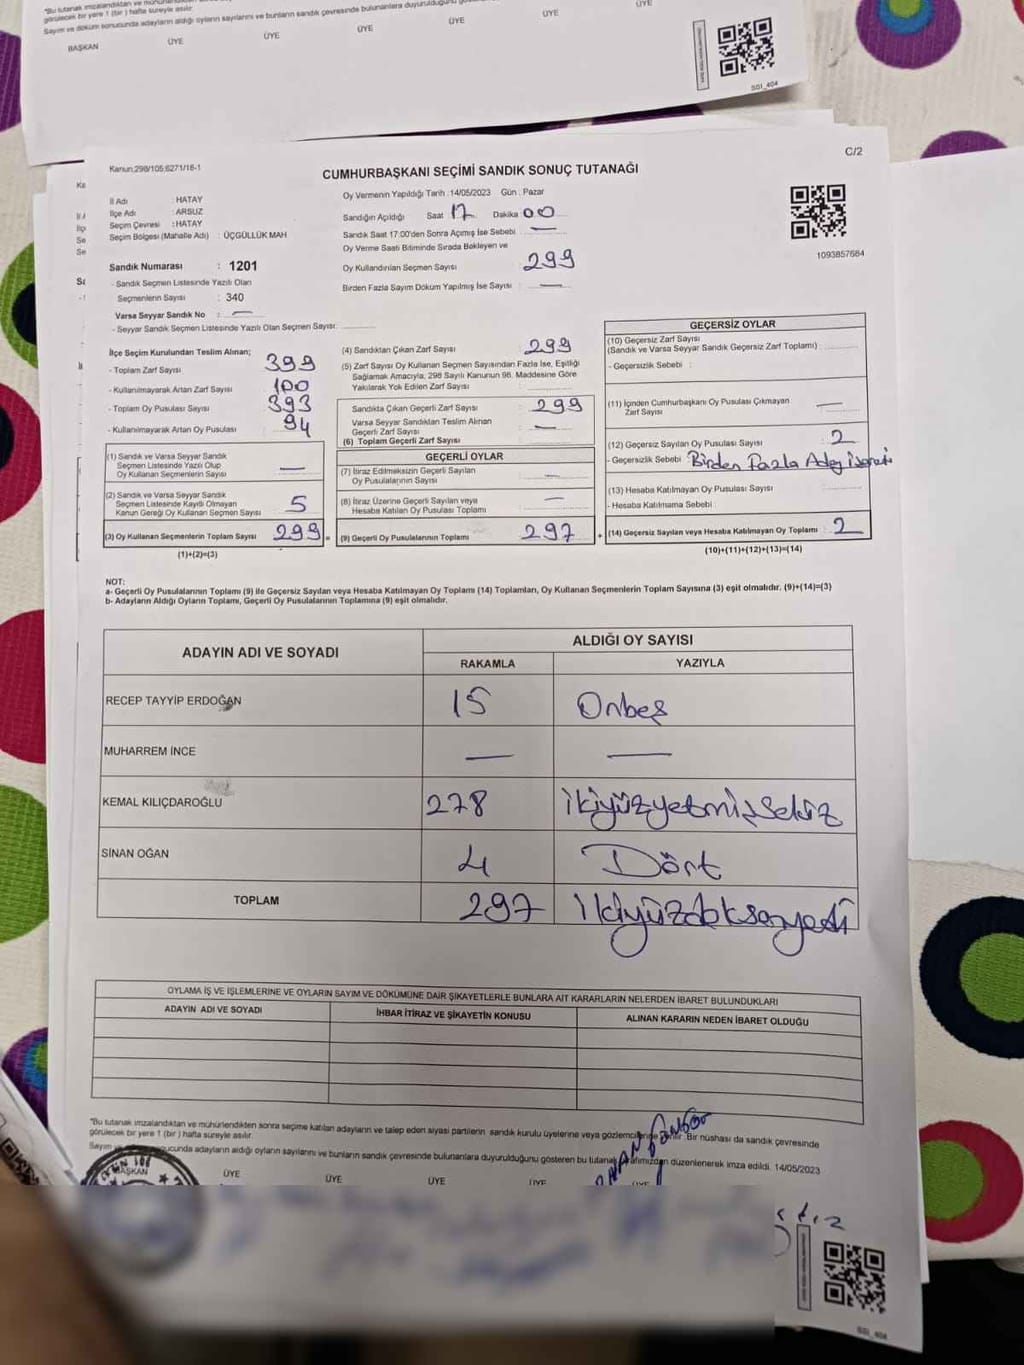 görülecek bir yere 1 (bir ) hafta süreyle asılır.
Sayım ve döküm sonucunda adayların aldığı oyların sayılarını ve bunların sandık çevresinde bulunanlara duyurulduğunu
BAŞKAN ÜYE ÜYE ÜYE ÜYE ÜYE ÜYE
SS1_404
Kanun:298/105;6271/16-1
C/2
CUMHURBAŞKANI SEÇİMİ SANDIK SONUÇ TUTANAĞI
İl Adı : HATAY
İlçe Adı : ARSUZ
Seçim Çevresi : HATAY
Seçim Bölgesi (Mahalle Adı) : ÜÇGÜLLÜK MAH
Sandık Numarası : 1201
- Sandık Seçmen Listesinde Yazılı Olan
Seçmenlerin Sayısı : 340
Varsa Seyyar Sandık No : —
- Seyyar Sandık Seçmen Listesinde Yazılı Olan Seçmen Sayısı:
Oy Vermenin Yapıldığı Tarih :14/05/2023 Gün : Pazar
Sandığın Açıldığı Saat 17 Dakika 00
Sandık Saat 17:00'den Sonra Açımış İse Sebebi : —
Oy Verme Saati Bitiminde Sırada Bekleyen ve
Oy Kullandırılan Seçmen Sayısı : 299
Birden Fazla Sayım Döküm Yapılmış İse Sayısı : —
1093857684
İlçe Seçim Kurulundan Teslim Alınan;
- Toplam Zarf Sayısı : 399
- Kullanılmayarak Artan Zarf Sayısı : 100
- Toplam Oy Pusulası Sayısı : 393
- Kullanılmayarak Artan Oy Pusulası : 94
(1) Sandık ve Varsa Seyyar Sandık
Seçmen Listesinde Yazılı Olup
Oy Kullanan Seçmenlerin Sayısı : —
(2) Sandık ve Varsa Seyyar Sandık
Seçmen Listesinde Kayıtlı Olmayan
Kanun Gereği Oy Kullanan Seçmen Sayısı : 5
(3) Oy Kullanan Seçmenlerin Toplam Sayısı : 299
(1)+(2)=(3)
(4) Sandıktan Çıkan Zarf Sayısı : 299
(5) Zarf Sayısı Oy Kullanan Seçmen Sayısından Fazla İse, Eşitliği
Sağlamak Amacıyla, 298 Sayılı Kanunun 98. Maddesine Göre
Yakılarak Yok Edilen Zarf Sayısı
Sandıkta Çıkan Geçerli Zarf Sayısı : 299
Varsa Seyyar Sandıktan Teslim Alınan
Geçerli Zarf Sayısı : —
(6) Toplam Geçerli Zarf Sayısı
GEÇERLİ OYLAR
(7) İtiraz Edilmeksizin Geçerli Sayılan
Oy Pusulalarının Sayısı : —
(8) İtiraz Üzerine Geçerli Sayılan veya
Hesaba Katılan Oy Pusulası Toplamı : —
(9) Geçerli Oy Pusulalarının Toplamı : 297
GEÇERSİZ OYLAR
(10) Geçersiz Zarf Sayısı
(Sandık ve Varsa Seyyar Sandık Geçersiz Zarf Toplamı) :
- Geçersizlik Sebebi :
(11) İçinden Cumhurbaşkanı Oy Pusulası Çıkmayan
Zarf Sayısı : —
(12) Geçersiz Sayılan Oy Pusulası Sayısı : 2
- Geçersizlik Sebebi : Birden Fazla Aday işareti
(13) Hesaba Katılmayan Oy Pusulası Sayısı :
- Hesaba Katılmama Sebebi :
(14) Geçersiz Sayılan veya Hesaba Katılmayan Oy Toplamı : 2
(10)+(11)+(12)+(13)=(14)
NOT:
a- Geçerli Oy Pusulalarının Toplamı (9) ile Geçersiz Sayılan veya Hesaba Katılmayan Oy Toplamı (14) Toplamları, Oy Kullanan Seçmenlerin Toplam Sayısına (3) eşit olmalıdır. (9)+(14)=(3)
b- Adayların Aldığı Oyların Toplamı, Geçerli Oy Pusulalarının Toplamına (9) eşit olmalıdır.
ADAYIN ADI VE SOYADI
ALDIĞI OY SAYISI
RAKAMLA YAZIYLA
RECEP TAYYİP ERDOĞAN 15 Onbeş
MUHARREM İNCE — —
KEMAL KILIÇDAROĞLU 278 ikiyüzyetmişsekiz
SİNAN OĞAN 4 Dört
TOPLAM 297 ikiyüzdoksanyedi
OYLAMA İŞ VE İŞLEMLERİNE VE OYLARIN SAYIM VE DÖKÜMÜNE DAİR ŞİKAYETLERLE BUNLARA AİT KARARLARIN NELERDEN İBARET BULUNDUKLARI
ADAYIN ADI VE SOYADI İHBAR İTİRAZ VE ŞİKAYETİN KONUSU ALINAN KARARIN NEDEN İBARET OLDUĞU
"Bu tutanak imzalandıktan ve mühürlendikten sonra seçime katılan adayların ve talep eden siyasi partilerin sandık kurulu üyelerine veya gözlemcilerine Bir nüshası da sandık çevresinde
görülecek bir yere 1 (bir ) hafta süreyle asılır.
Sayım ve sonucunda adayların aldığı oyların sayılarını ve bunların sandık çevresinde bulunanlara duyurulduğunu gösteren bu tutanak tarafımızdan düzenlenerek imza edildi. 14/05/2023
BAŞKAN ÜYE ÜYE ÜYE ÜYE ÜYE
SS1_404